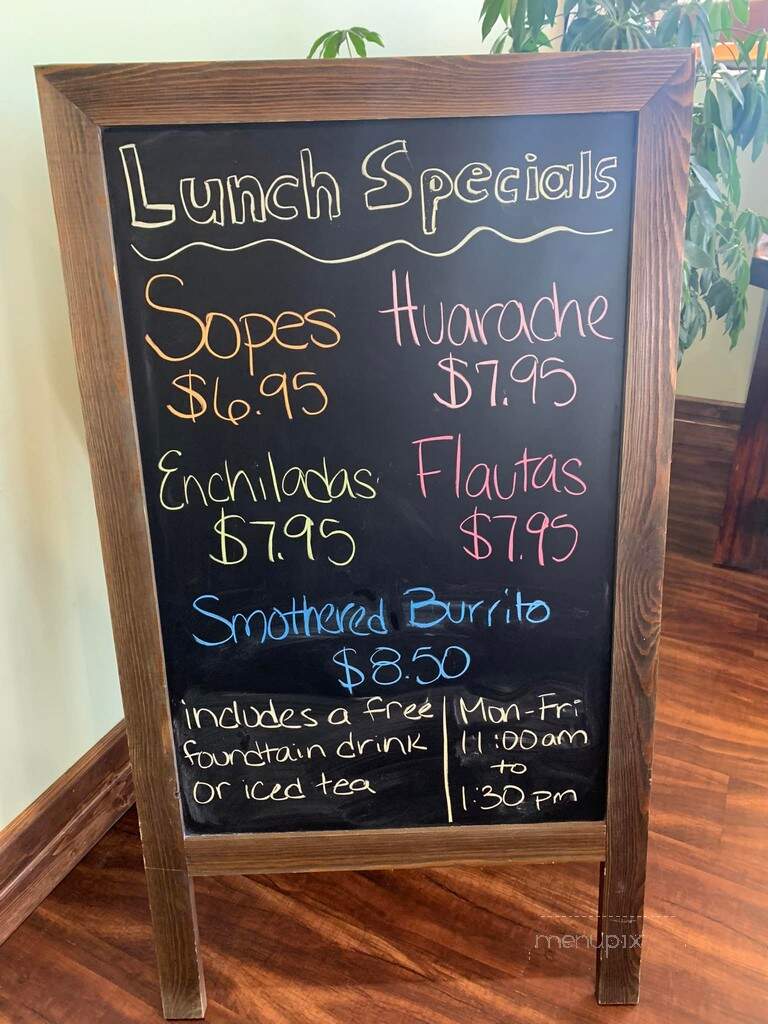 Lunch Specials
Sopes
$6.95
Huarache
$7.95
Enchiladas
$7.95
Flautas
$7.95
Smothered Burrito
$8.50
includes a free
foundtain drink
or iced tea
Mon-Fri
11:00am
to
1:30pm
menupix